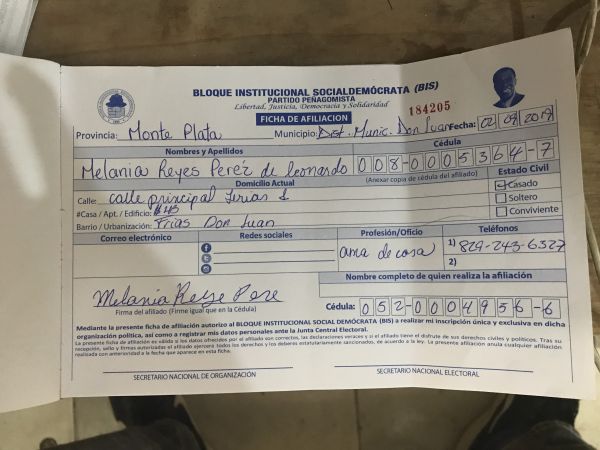 BLOQUE INSTITUCIONAL SOCIALDEMÓCRATA (BIS)
PARTIDO PEÑAGOMISTA
Libertad, Justicia, Democracia y Solidaridad
184205
FICHA DE AFILIACION
Provincia: Monte Plata Municipio: Dist. Munic. Don Juan Fecha: 02 09 2019
Nombres y Apellidos Cédula
Melania Reyes Peréz de leonardo 008-0005364-7
Domicilio Actual (Anexar copia de cédula del afiliado) Estado Civil
Calle: calle principal Frias 1 Casado
#Casa / Apt. / Edificio: #45 Soltero
Barrio / Urbanización: Frias Don Juan Conviviente
Correo electrónico Redes sociales Profesión/Oficio Teléfonos
ama de casa 1) 829-243-6327
2)
Nombre completo de quien realiza la afiliación
Melania Reye Pere
Firma del afiliado (Firme igual que en la Cédula) Cédula: 052-0004956-6
Mediante la presente ficha de afiliación autorizo al BLOQUE INSTITUCIONAL SOCIAL DEMÓCRATA (BIS) a realizar mi inscripción única y exclusiva en dicha
organización política, así como a registrar mis datos personales ante la Junta Central Electoral.
La presente ficha de afiliación es válida si los datos ofrecidos por el afiliado son correctos, las declaraciones veraces y si el afiliado tiene el disfrute de sus derechos civiles y políticos. Tras su
recepción, sello y firmas autorizadas el afiliado ejercerá todos los derechos y los deberes estatutariamente sancionados, de acuerdo a la ley. La presente afiliación anula cualquier afiliación
realizada con anterioridad a la fecha que aparece en esta ficha.
SECRETARIO NACIONAL DE ORGANIZACIÓN SECRETARIO NACIONAL ELECTORAL